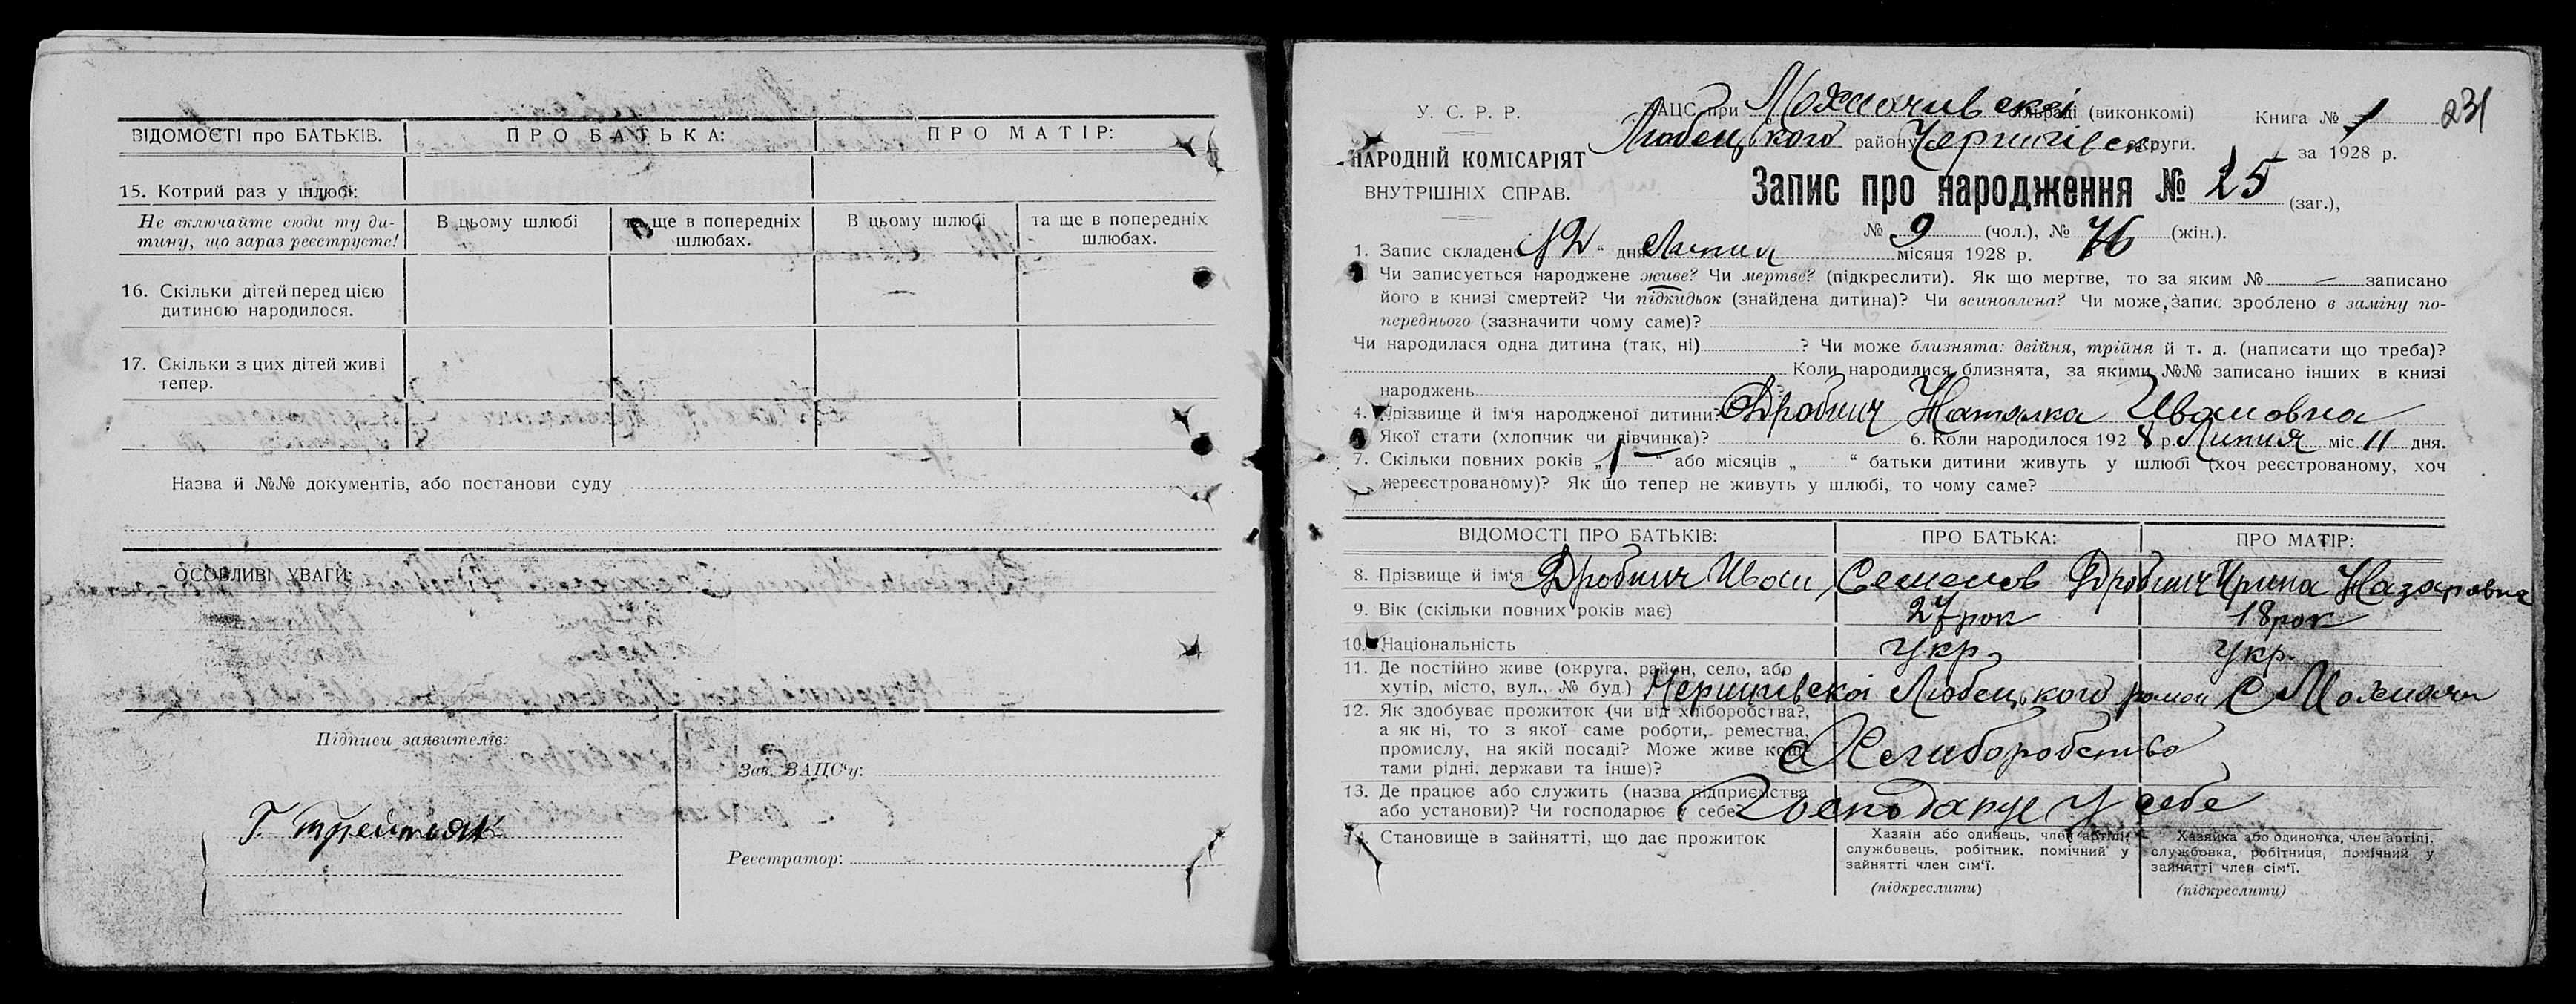 ВІДОМОСТІ про БАТЬКІВ. ПРО БАТЬКА: ПРО МАТІР:
15. Котрий раз у шлюбі:
Не включайте сюди ту ди-
тину, що зараз реєструєте!
В цьому шлюбі
та ще в попередніх
шлюбах.
В цьому шлюбі
та ще в попередніх
шлюбах.
16. Скільки дітей перед цією
дитиною народилося.
17. Скільки з цих дітей живі
тепер.
Назва й №№ документів, або постанови суду
ОСОБЛИВІ УВАГИ:
Підписи заявителів:
Зав. ВАЦСʻу:
Реєстратор:
231
У. С. Р. Р.
НАРОДНІЙ КОМІСАРІЯТ
ВНУТРІШНІХ СПРАВ.
при Мохначивскої (виконкомі)
Любецького району Чернигівск округи.
Книга № 1
за 1928 р.
Запис про народження № 25 (заг.),
№ 9 (чол.), № 16 (жін.).
1. Запис складено 12 “ дня Липня місяця 1928 р.
Чи записується народжене живе? Чи мертве? (підкреслити). Як що мертве, то за яким № — записано
його в книзі смертей? Чи підкидьок (знайдена дитина)? Чи всиновлена? Чи може, запис зроблено в заміну по-
переднього (зазначити чому саме)?
Чи народилася одна дитина (так, ні) ? Чи може близнята: двійня, трійня й т. д. (написати що треба)?
Коли народилися близнята, за якими №№ записано інших в книзі
народжень
4. Прізвище й ім'я народженої дитини? Дробнич Наталка Ивановна
Якої стати (хлопчик чи дівчинка)? 6. Коли народилося 1928 р. Липня міс. 11 дня.
7. Скільки повних років „ 1 — “ або місяців „ “ батьки дитини живуть у шлюбі (хоч реєстрованому, хоч
нереєстрованому)? Як що тепер не живуть у шлюбі, то чому саме?
ВІДОМОСТІ ПРО БАТЬКІВ: ПРО БАТЬКА: ПРО МАТІР:
8. Прізвище й ім'я Дробнич Иван Семенов Дробнич Ирина Назаровна
9. Вік (скільки повних років має) 27 рок 18 рок
10. Національність Укр. Укр.
11. Де постійно живе (округа, район, село, або
хутір, місто, вул., № буд.) Чернигівскої Любецького район С Мохначи
12. Як здобуває прожиток (чи від хліборобства?,
а як ні, то з якої саме роботи, ремества,
промислу, на якій посаді? Може живе кош-
тами рідні, держави та інше)?
Хлиборобство
13. Де працює або служить (назва підприємства
або установи)? Чи господарює у себе Господарує У себе
Становище в зайнятті, що дає прожиток
Хазяїн або одинець, член артілі,
службовець, робітник, помічний у
зайнятті член сім'ї.
(підкреслити)
Хазяйка або одиночка, член артілі,
службовка, робітниця, помічний у
зайнятті член сім'ї.
(підкреслити)